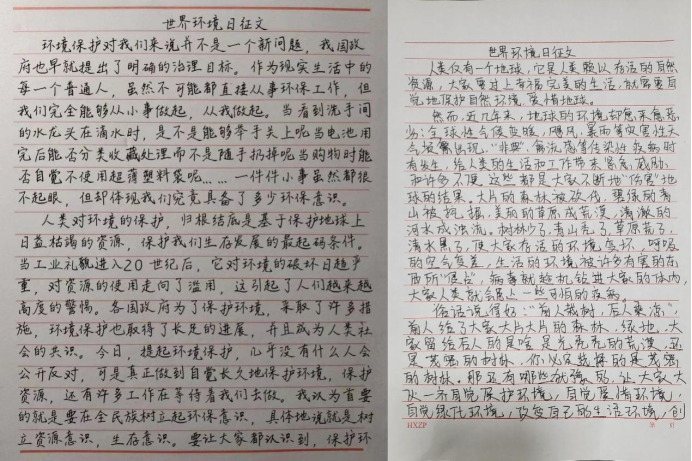 世界环境日征文
环境保护对我们来说并不是一个新问题,我国政
府也早就提出了明确的治理目标。作为现实生活中的
每一个普通人,虽然不可能都直接从事环保工作,但
我们完全能够从小事做起,从我做起。当看到洗手间
的水龙头在滴水时,是不是能够举手关上呢当电池用
完后能否分类收藏处理而不是随手扔掉呢当购物时能
否自觉不使用超薄塑料袋呢……一件件小事虽然都很
不起眼,但却体现我们究竟具备了多少环保意识。
人类对环境的保护,归根结底是基于保护地球上
日益枯竭的资源,保护我们生存发展的最起码条件。
当工业礼貌进入20世纪后,它对环境的破坏日趋严
重,对资源的使用走向了滥用,这引起了人们越来越
高度的警惕。各国政府为了保护环境,采取了许多措
施,环境保护也取得了长足的进展,并且成为人类社
会的共识。今日,提起环境保护,几乎没有什么人会
公开反对,可是真正做到自觉长久地保护环境,保护
资源,还有许多工作在等待着我们去做。我认为首要
的就是要在全民族树立起环保意识,具体地说就是树
立资源意识,生存意识。要让大家都认识到,保护环
世界环境日征文
人类仅有一个地球,它是人类赖以存活的自然
资源,大家要过上幸福完美的生活,就需要自
觉地保护自然环境,爱惜地球。
然而,近几年来,地球的环境却愈来愈恶
劣:全球性气候变暖,飓风,暴雨等灾害性天
气频繁出现,"非典",禽流感等传染性疾病时
有发生,给人类的生活和工作带来紧张,威胁
和许多不便。这些都是大家不断地"伤害"地
球的结果。大片的森林被砍伐,碧绿的青
山被挖掘,美丽的草原成荒漠,清澈的
河水成浊流。树林少了,青山秃了,草原荒了,
清水黑了,使大家存活的环境恶坏,呼吸
的空气变差,生活的环境被许多有害的东
西所"侵占",病毒就趁机钻进大家的体内,
大家人类就会患上一些可怕的疾病。
俗话说得好:"前人栽树,后人乘凉",
前人给了大家大片大片的森林,绿地。大
家留给后人的是啥是光秃秃的荒漠,还
是茂密的树林。你必定选择的是茂密
的树林。那还有哪些犹豫的,让大家大
伙一齐自觉保护环境,自觉爱惜环境,
自觉绿化环境,改变自己的生活环境,创
HXZP